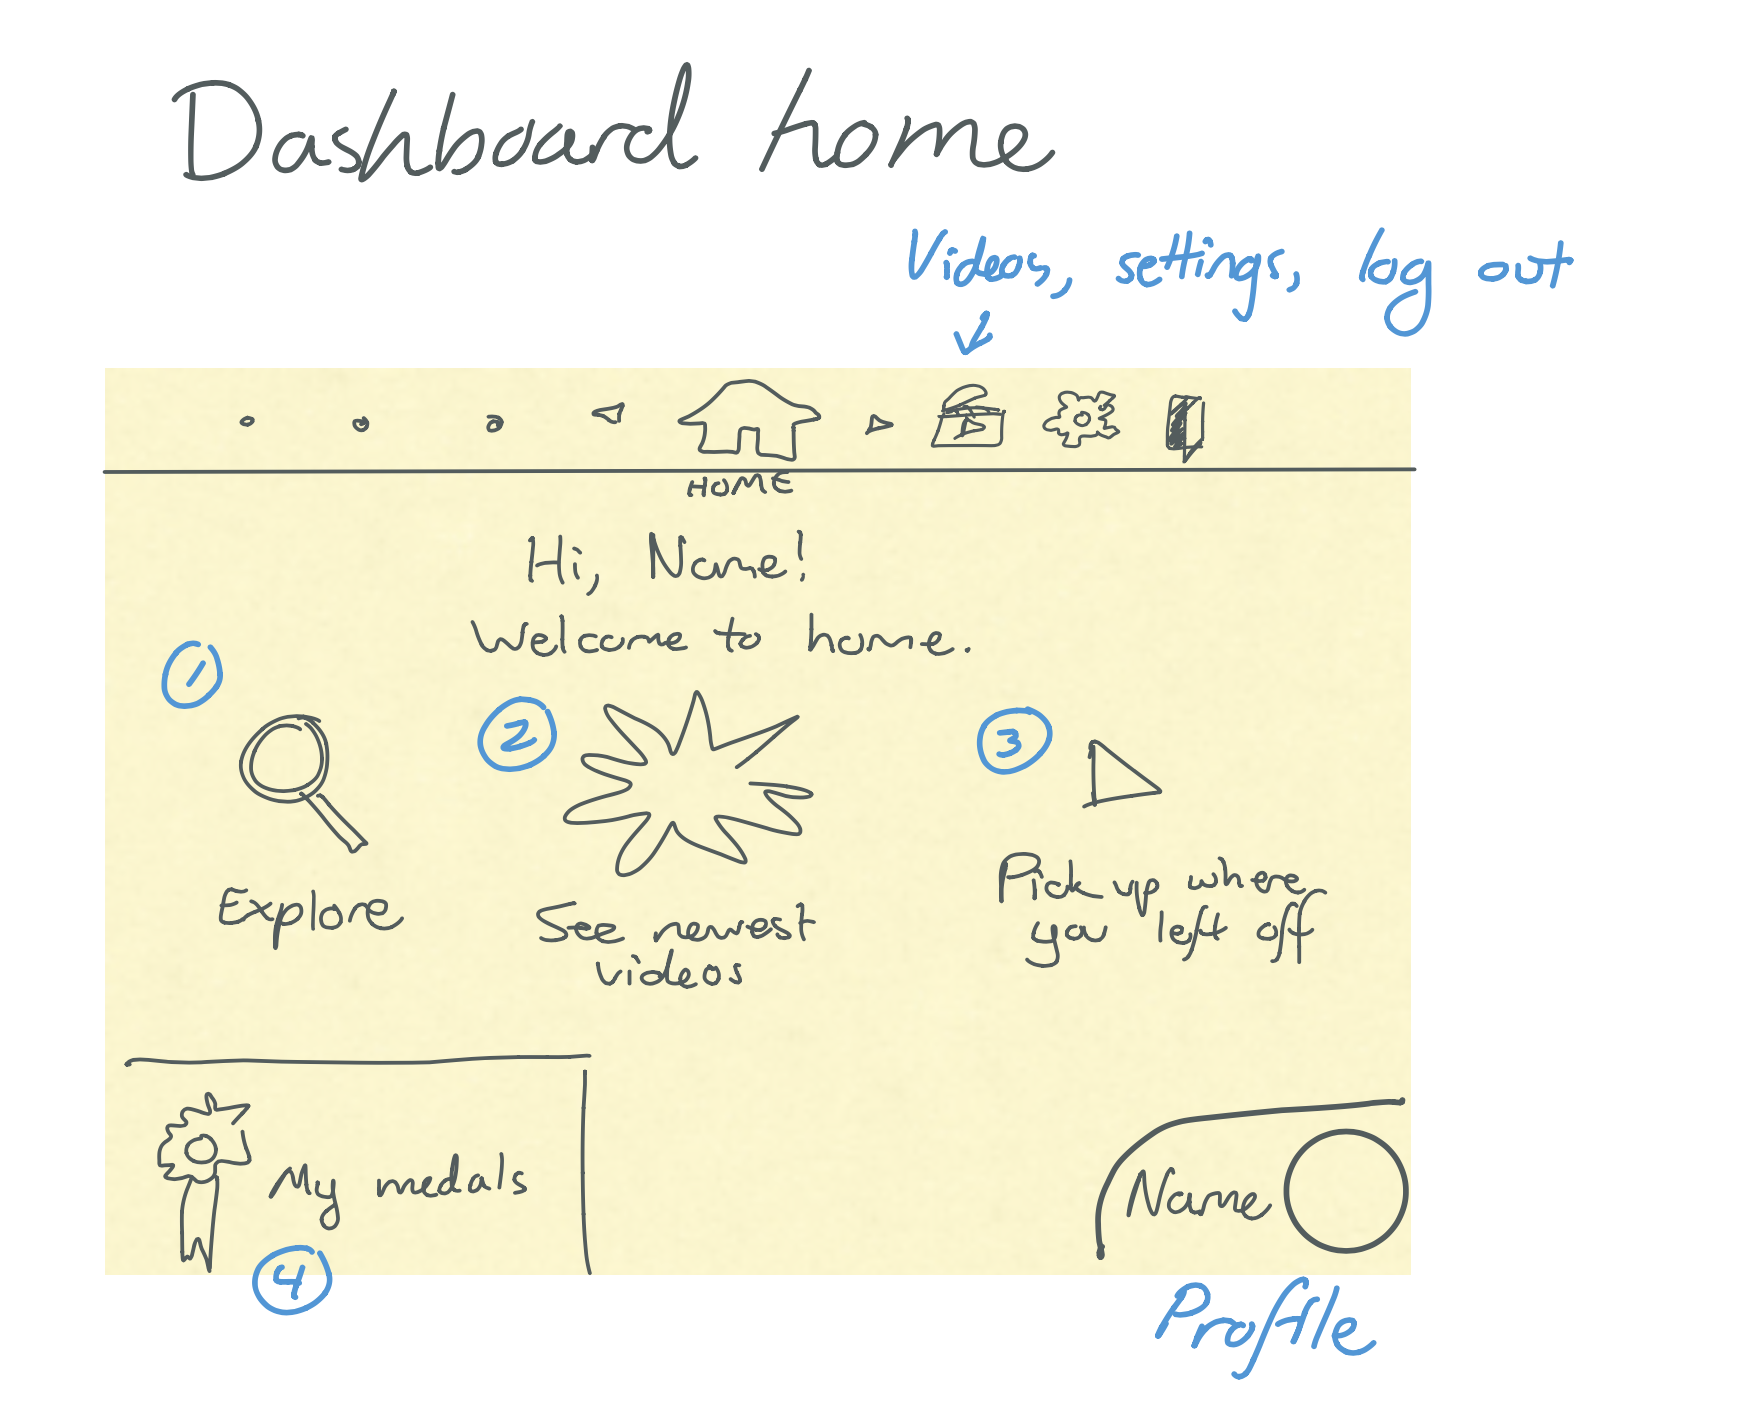 Dashboard home
Videos, settings, log out
HOME
Hi, Name!
Welcome to home.
1
2
3
Explore
See newest
videos
Pick up where
you left off
My medals
4
Name
Profile